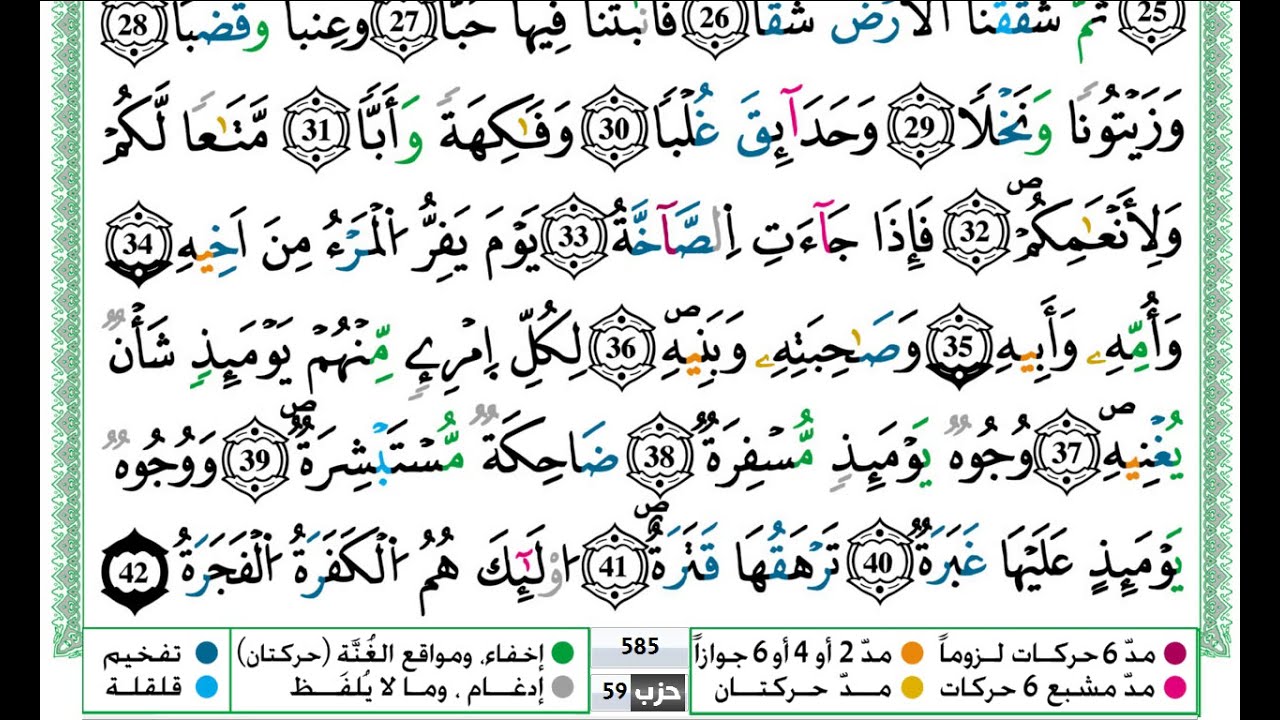 ثُمَّ شَقَقْنَا الْأَرْضَ شَقًّا 26 فَأَنۢبَتْنَا فِيهَا حَبًّا 27 وَعِنَبًا وَقَضْبًا 28
وَزَيْتُونًا وَنَخْلًا 29 وَحَدَآئِقَ غُلْبًا 30 وَفَٰكِهَةً وَأَبًّا 31 مَّتَٰعًا لَّكُمْ
وَلِأَنْعَٰمِكُمْ ۖ 32 فَإِذَا جَآءَتِ اِ۬لصَّآخَّةُ 33 يَوْمَ يَفِرُّ اُ۬لْمَرْءُ مِنَ اَخِيهِ 34
وَأُمِّهِۦ وَأَبِيهِ 35 وَصَٰحِبَتِهِۦ وَبَنِيهِ ۖ 36 لِكُلِّ اِ۪مْرِےٕٖ مِّنْهُمْ يَوْمَئِذٍ شَأْنٌ
يُغْنِيهِ ۖ 37 وُجُوهٌ يَوْمَئِذٍ مُّسْفِرَةٌ 38 ضَاحِكَةٌ مُّسْتَبْشِرَةٌ ۖ 39 وَوُجُوهٌ
يَوْمَئِذٍ عَلَيْهَا غَبَرَةٌ 40 تَرْهَقُهَا قَتَرَةٌ ۖ 41 اُ۟وْلَٰٓئِكَ هُمُ اُ۬لْكَفَرَةُ اُ۬لْفَجَرَةُ 42
مدّ 6 حركات لزوماً مدّ 2 أو 4 أو 6 جوازاً 585 إخفاء، ومواقع الغُنَّة (حركتان) تفخيم
مدّ مشبع 6 حركات مدّ حركتان حزب 59 إدغام ، وما لا يُلفَظ قلقلة